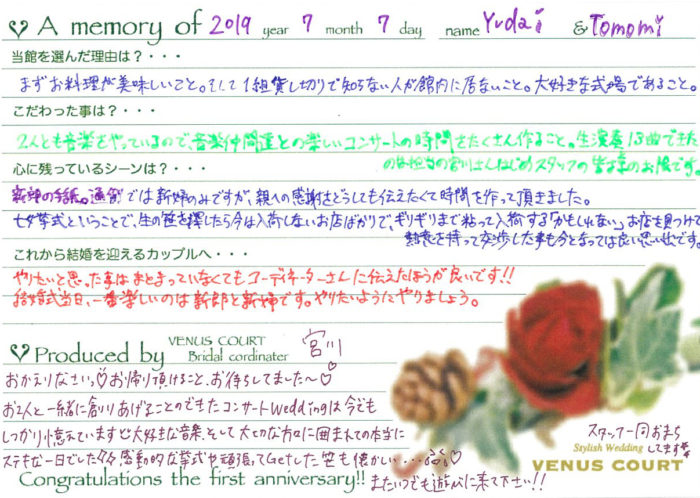 A memory of 2019 year 7 month 7 day name Yudai & Tomomi
当館を選んだ理由は?・・・
まずお料理が美味しいこと。そして1組貸し切りで知らない人が館内に居ないこと。大好きな式場であること。
こだわった事は?・・・
2人とも音楽をやっているので、音楽仲間達との楽しいコンサートの時間をたくさん作ること。生演奏13曲できた
の各担当の宮川さんはじめスタッフの皆さまのお陰です。
心に残っているシーンは?・・・
新郎の手紙。通例では新婦のみですが、親への感謝をどうしても伝えたくて時間を作って頂きました。
七夕挙式ということで、生の笹を探したら今は入荷しないお店ばかりで、ギリギリまで粘って入荷する「かもしれない」お店を見つけて
熱意を持って交渉した事も今となっては良い思い出です。
これから結婚を迎えるカップルへ・・・
やりたいと思った事はまとまっていなくてもコーディネーターさんに伝えたほうが良いです!!
結婚式当日、一番楽しいのは新郎と新婦です。やりたいようにやりましょう。
Produced by VENUS COURT Bridal cordinater 宮川
おかえりなさいっ♡お帰り頂けること、お待ちしてました〜♡
お2人と一緒に創りあげることのできたコンサートWeddingは今でも
しっかり憶えています♡大好きな音楽、そして大切な方々に囲まれての本当に
ステキな一日でした 感動的な挙式や頑張ってGetした笹も懐かしい・・・♡
Congratulations the first anniversary!! またいつでも遊びに来て下さい!!
スタッフ一同おまち
してます
Stylish Wedding
VENUS COURT